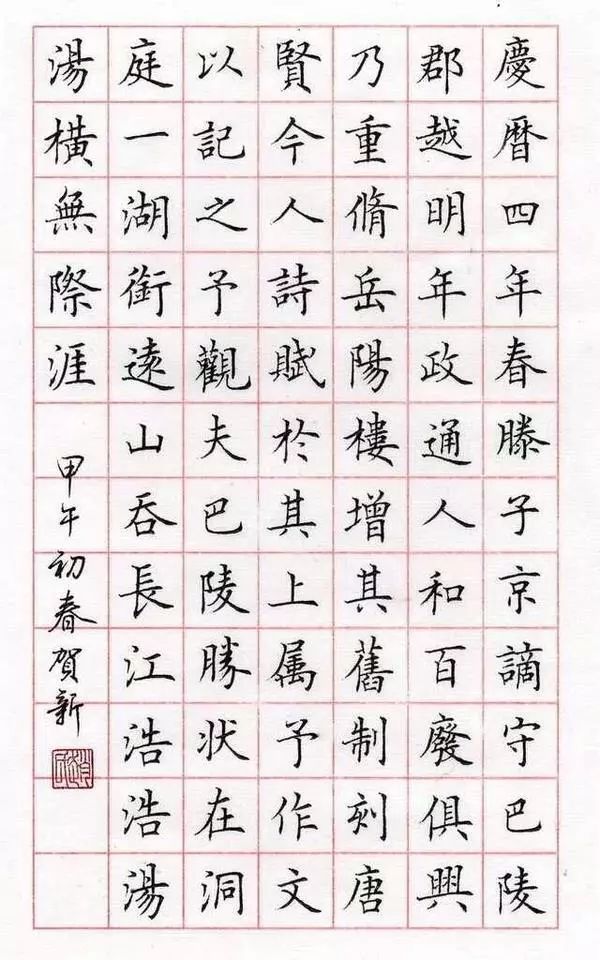 慶曆四年春滕子京謫守巴陵
郡越明年政通人和百廢俱興
乃重脩岳陽樓增其舊制刻唐
賢今人詩賦於其上属予作文
以記之予觀夫巴陵勝狀在洞
庭一湖銜遠山吞長江浩浩湯
湯橫無際涯
甲午初春賀新